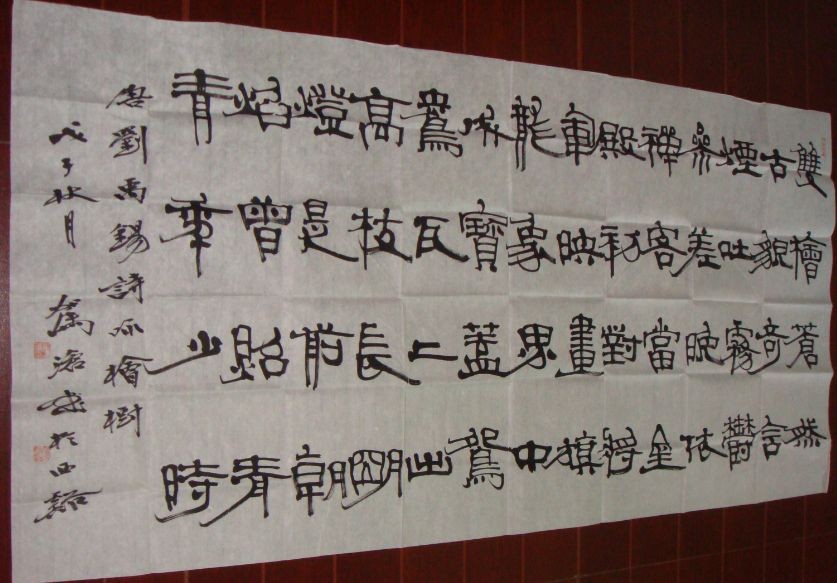 雙檜蒼然
古貌奇含
煙吐霧鬱
參差晚依
禪客當金
殿初對將
軍映畫旗
龍象界中
成寶蓋鴛
鴦瓦上出
高枝長明
燈是前朝
焰曾照青
青年少時
唐劉禹錫詩雙檜樹
戊子秋月 書於